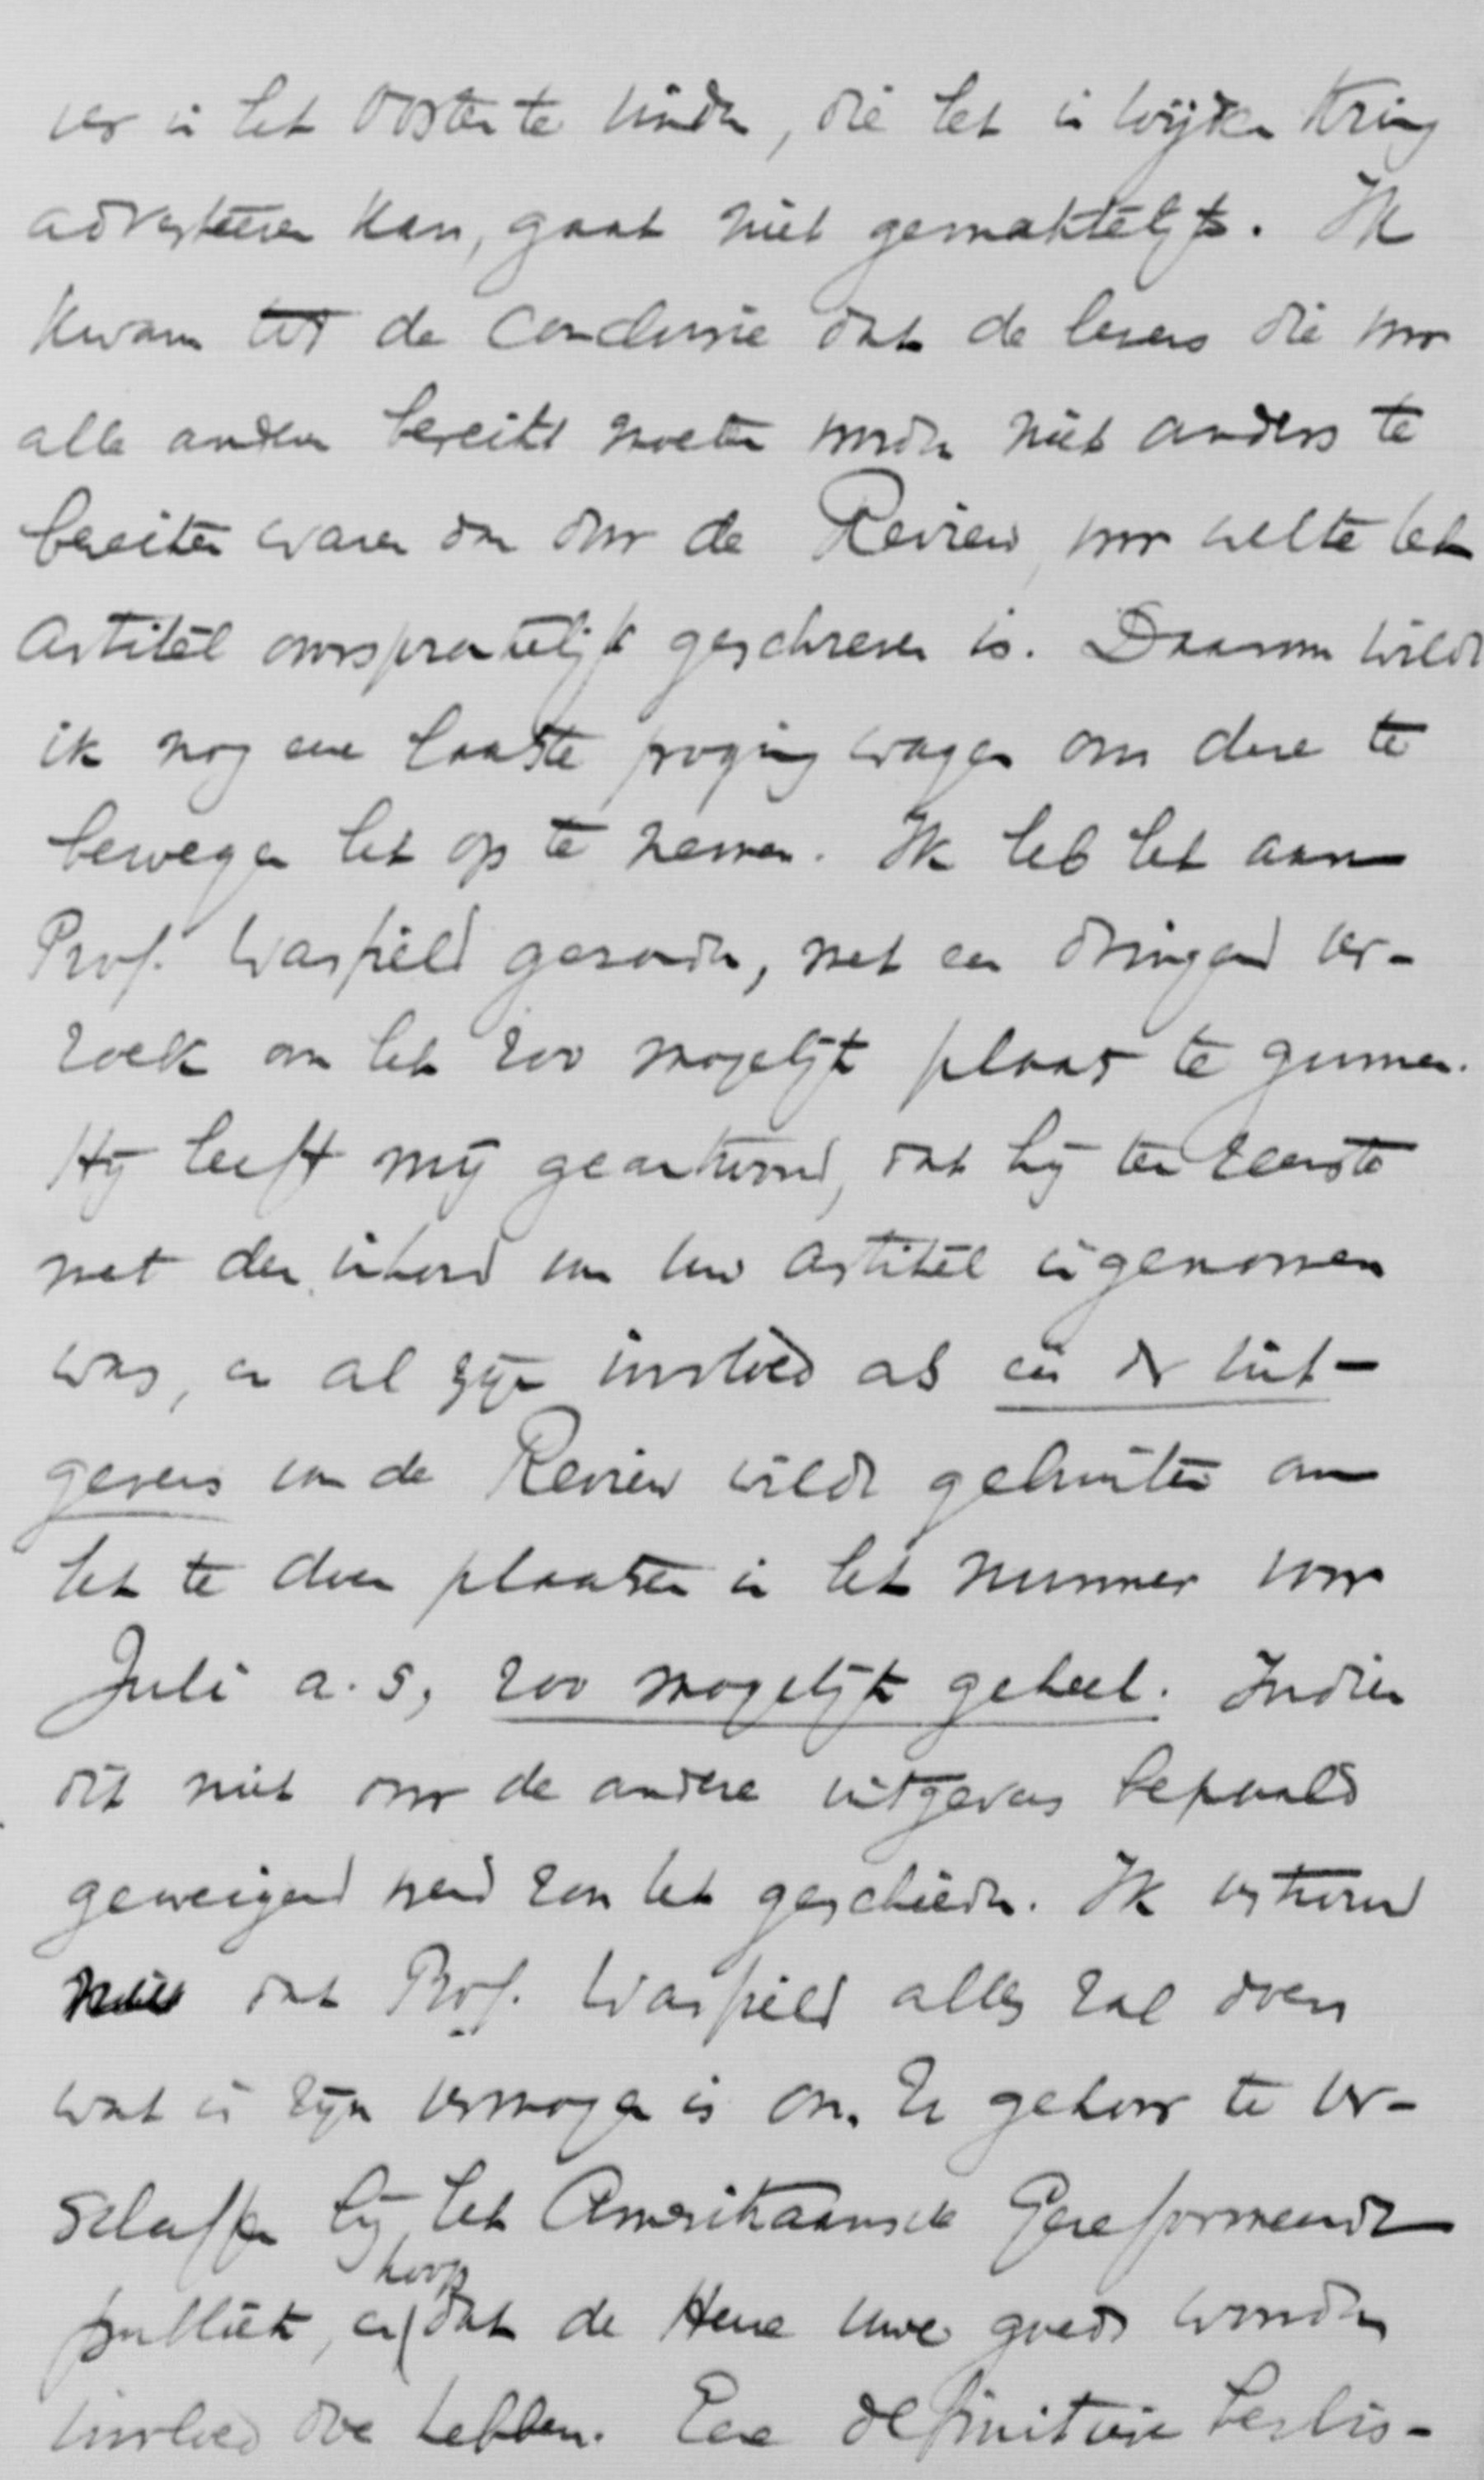 ver in het Oosten te vinden, die het in wijden kring
adverteeren kan, gaat niet gemakkelijk. Ik
kwam tot de conclusie dat de lezers die voor
alle anderen bereikt moeten worden niet anders te
bereiken waren dan door de Review, voor welke het
artikel oorspronkelijk geschreven is. Daarom wilde
ik nog eene laatste poging wagen om deze te
bewegen het op te nemen. Ik heb het aan
Prof. Warfield gezonden, met een dringend ver-
zoek om het zoo mogelijk plaats te gunnen.
Hij heeft mij geantwoord, dat hij ten zeerste
met den inhoud van uw artikel ingenomen
was, en al zijn invloed als een der uit-
gevers van de Review wilde gebruiken om
het te doen plaatsen in het nummer voor
Juli a. s, zoo mogelijk geheel. Indien
dit niet door de andere uitgevers bepaald
geweigerd werd zou het geschieden. Ik vertrouw
dat Prof. Warfield alles zal doen
wat in zijn vermogen is om U gehoor te ver-
schaffen bij het Amerikaansch Gereformeerde
publiek, en hoop dat de Heere uwe goede woorden
invloed doe hebben. Eene definitieve beslis-